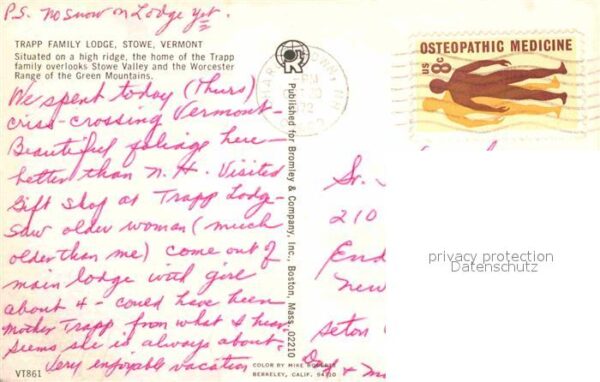 P.S. No snow on Lodge yet.
TRAPP FAMILY LODGE, STOWE, VERMONT
Situated on a high ridge, the home of the Trapp
family overlooks Stowe Valley and the Worcester
Range of the Green Mountains.
We spent today (Thurs)
criss-crossing Vermont-
Beautiful foliage here-
better than N.H. Visited
Gift Shop at Trapp Lodge-
Saw older woman (much
older than me) come out of
main lodge with girl
about 4 - could have been
Mother Trapp from what I hear,
seems she is always about-
Very enjoyable vacation
VT861
COLOR BY MIKE ROBERTS
BERKELEY, CALIF. 94710
Published for Bromley & Company, Inc., Boston, Mass. 02210
PM
OSTEOPATHIC MEDICINE
US 8c
Sr.
210
End
New
Seton
Day &
privacy protection
Datenschutz